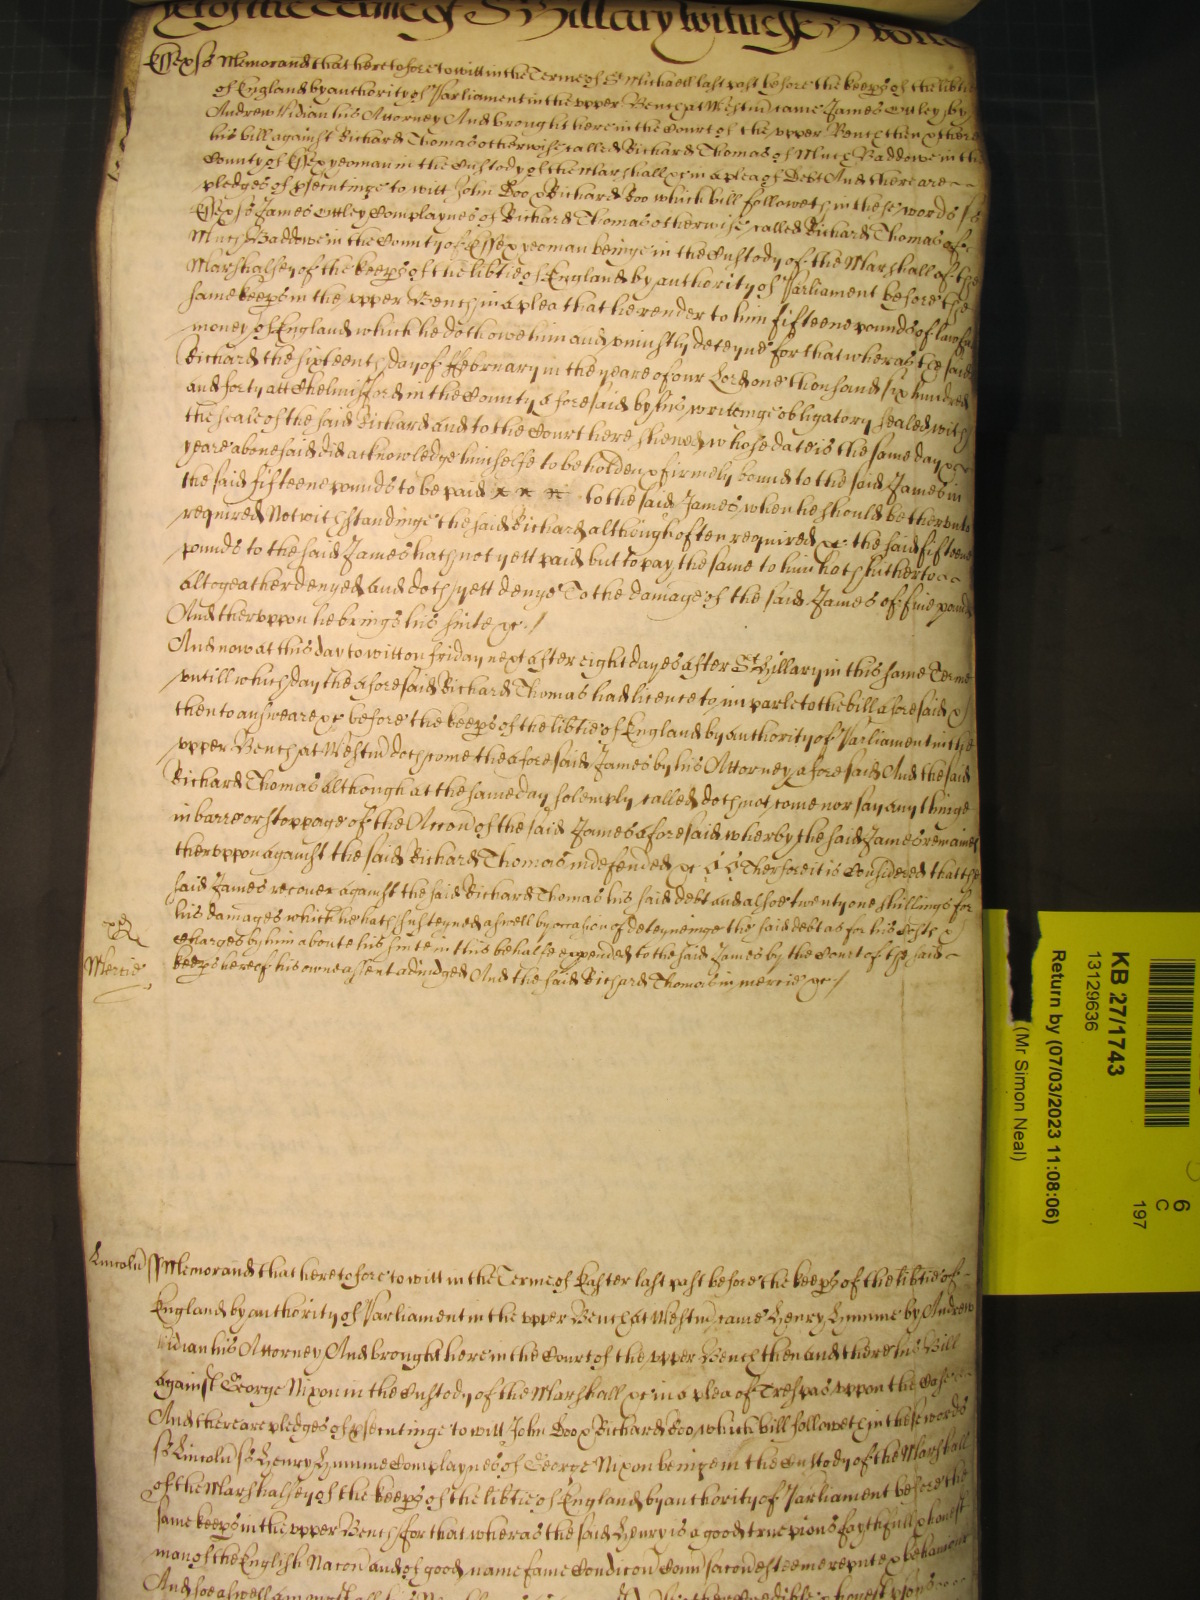 yet of the Terme of St Hillary witnesse
Essex ss Memorand that heretofore to witt in the Terme of St Michaell last past before the keeps of the libtie
of England by authority of Parliament in the upper Bench at Westm came James Ottley by
Andrew Vidian his Attorney And brought here in the Court of the upper Bench then & there
his bill against Richard Thomas otherwise called Richard Thomas of Much Baddowe in the
County of Essex yeoman in the Custody of the Marshall &c in a plea of Debt And there are
pledges of psecutinge to witt John Doo & Richard Roo which bill followeth in these words ss
Essex ss James Ottley Complaynes of Richard Thomas otherwise called Richard Thomas of
Much Baddowe in the County of Essex yeoman beinge in the Custody of the Marshall of the
Marshalsey of the keeps of the libtie of England by authority of Parliament before the
same keeps in the upper Bench in a plea that he render to him fifteene pounds of lawfull
money of England which he doth owe him and uniustly deteyne for that wheras the said
Richard the sixteenth day of ffebruary in the yeare of our Lord one thousand six hundred
and forty att Chelmisford in the County aforesaid by his writeinge obligatory sealed with
the seale of the said Richard and to the Court here shewed whose date is the same day &
yeare abovesaid did acknowledge himselfe to be holden & firmely bound to the said James in
the said fifteene pounds to be paid to the said James when he should be therunto
required Notwithstandinge the said Richard although often required &c the said fifteene
pounds to the said James hath not yett paid but to pay the same to him hath hitherto
altogeather denyed and doth yett denye To the damage of the said James of five pounds
And theruppon he brings his suite &c /
And now at this day to witt on friday next after eight dayes after St Hillary in this same Terme
untill which day the aforesaid Richard Thomas had licence to imparle to the bill aforesaid &
then to answeare &c before the keeps of the libtie of England by authority of Parliament in the
upper Bench at Westm doth come the aforesaid James by his Attorney aforesaid And the said
Richard Thomas although at the same day solemply called doth not come nor say any thinge
in barre or stoppage of the Accon of the said James aforesaid wherby the said James remaines
theruppon against the said Richard Thomas indefended &c Therfore it is Considered that the
said James recover against the said Richard Thomas his said debt and alsoe twenty one shillings for
his damages which he hath susteyned aswell by occasion of deteyneinge the said debt as for his Costs &
Charges by him aboute his suite in this behalfe expended to the said James by the Court of the said
Mercie
keeps here of his owne assent adiudged And the said Richard Thomas in mercie &c /
Lincoln ss Memorand that heretofore to witt in the Terme of Easter last past before the keeps of the libtie of
England by authority of Parliament in the upper Bench at Westm came Henry Hmme by Andrew
Vidian his Attorney And brought here in the Court of the upper Bench then and there his Bill
against George Nixon in the Custody of the Marshall &c in a plea of Trespas uppon the Case
And there are pledges of psecutinge to witt John Doo & Richard Roo which bill followeth in these words
ss Lincoln ss Henry Complaynes of George Nixon beinge in the Custody of the Marshall
of the Marshalsey of the keeps of the libtie of England by authority of Parliament before the
same keeps in the upper Bench for that wheras the said Henry is a good true pious faythfull & honest
man of the English Nacon and of good name fame Condicon Convsacon esteeme repute & behaviour
And soe aswell
KB 27/1743
13129636
Return by (07/03/2023 11:08:06)
(Mr Simon Neal)
6
C
197